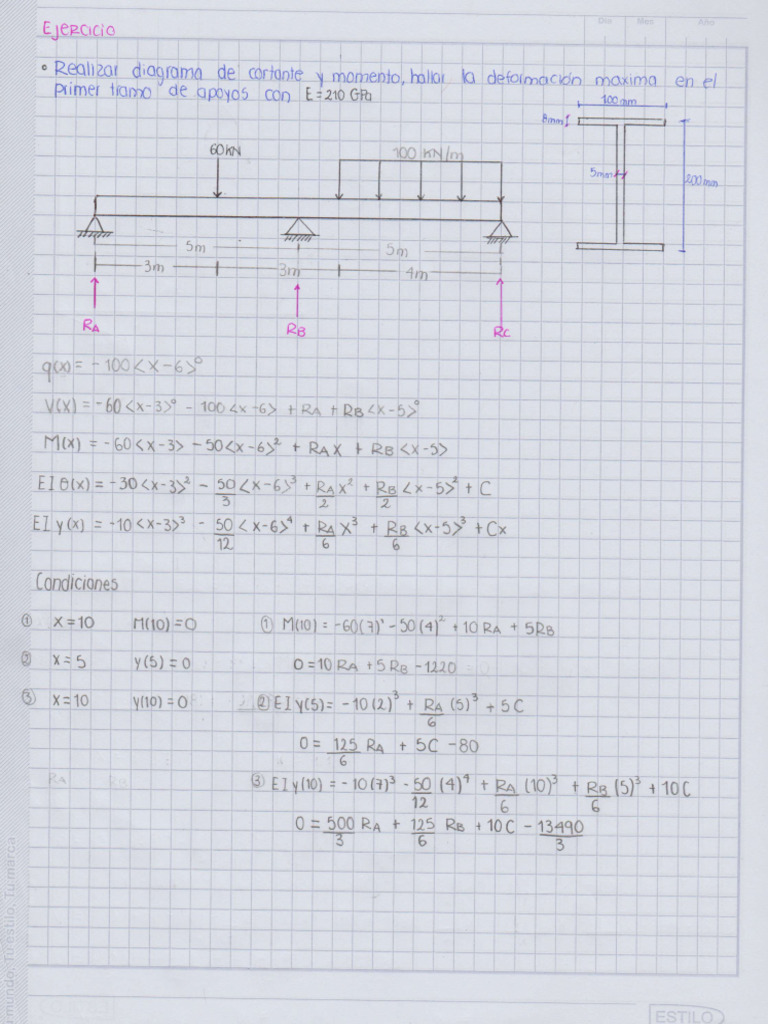 Dia Mes Año
Ejercicio
• Realizar diagrama de cortante y momento, hallar la deformación maxima en el
primer tramo de apoyos con E = 210 GPa
100mm
8mm
5mm
200mm
60KN
100 KN/m
5m 5m
3m 3m 4m
RA RB RC
q(x) = -100<x-6>⁰
V(x) = -60<x-3>⁰ - 100<x-6> + RA + RB<x-5>⁰
M(x) = -60<x-3> - 50<x-6>² + RAx + RB<x-5>
EIθ(x) = -30<x-3>² - 50/3<x-6>³ + RA/2 x² + RB/2<x-5>² + C
EIy(x) = -10<x-3>³ - 50/12<x-6>⁴ + RA/6 x³ + RB/6<x-5>³ + Cx
Condiciones
① x=10 M(10)=0 ① M(10) = -60(7)' - 50(4)² + 10RA + 5RB
② x=5 y(5)=0 0=10RA + 5RB - 1220
③ x=10 y(10)=0 ② EIy(5) = -10(2)³ + RA/6 (5)³ + 5C
0 = 125/6 RA + 5C - 80
③ EIy(10) = -10(7)³ - 50/12 (4)⁴ + RA/6 (10)³ + RB/6 (5)³ + 10C
0 = 500/3 RA + 125/6 RB + 10C - 13490/3
mundo. Tu estilo. Tu marca
ESTILO